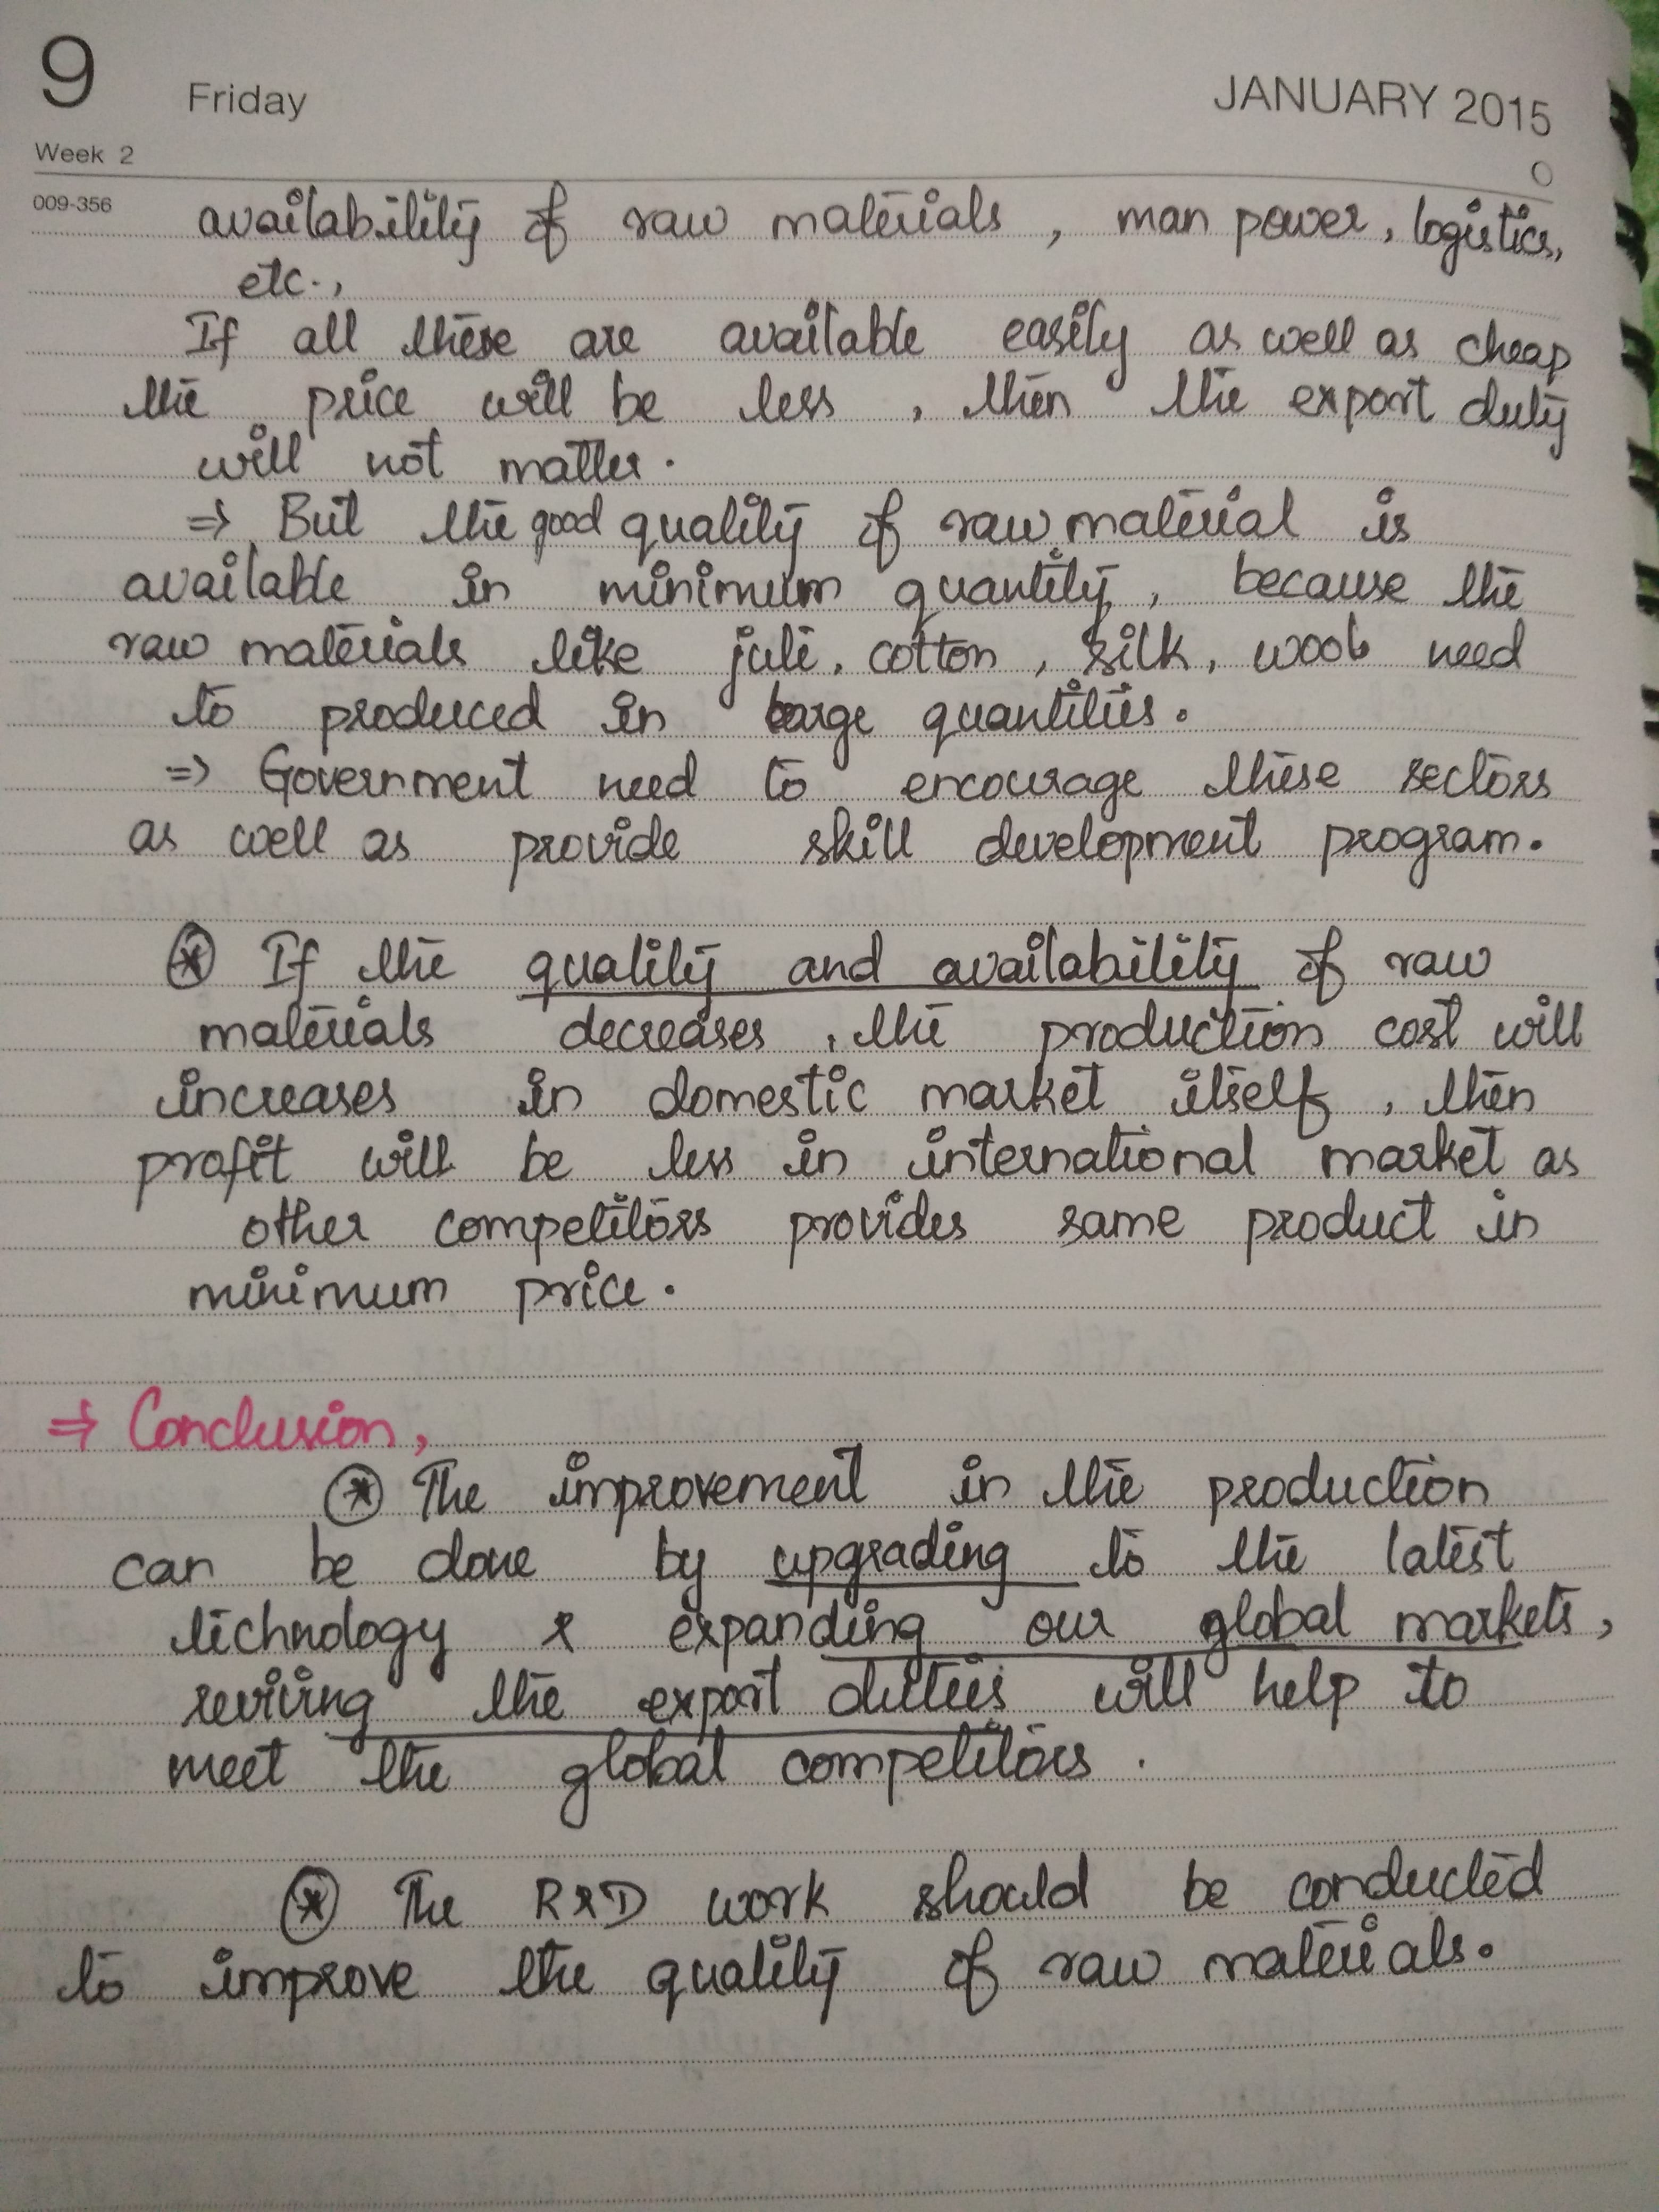 9 Friday JANUARY 2015
Week 2
009-356
availability of raw materials, man power, logistics,
etc.,
If all these are available easily as well as cheap
the price will be less, then the export duty
will not matter.
⇒ But the good quality of raw material is
available in minimum quantity, because the
raw materials like jute, cotton, silk, wool need
to produced in large quantities.
⇒ Government need to encourage these sectors
as well as provide skill development program.
⊛ If the quality and availability of raw
materials decreases, the production cost will
increases in domestic market itself, then
profit will be less in international market as
other competitors provides same product in
minimum price.
⇒ Conclusion,
⊛ The improvement in the production
can be done by upgrading to the latest
technology & expanding our global markets,
reviving the export duties will help to
meet the global competitors.
⊛ The R&D work should be conducted
to improve the quality of raw materials.